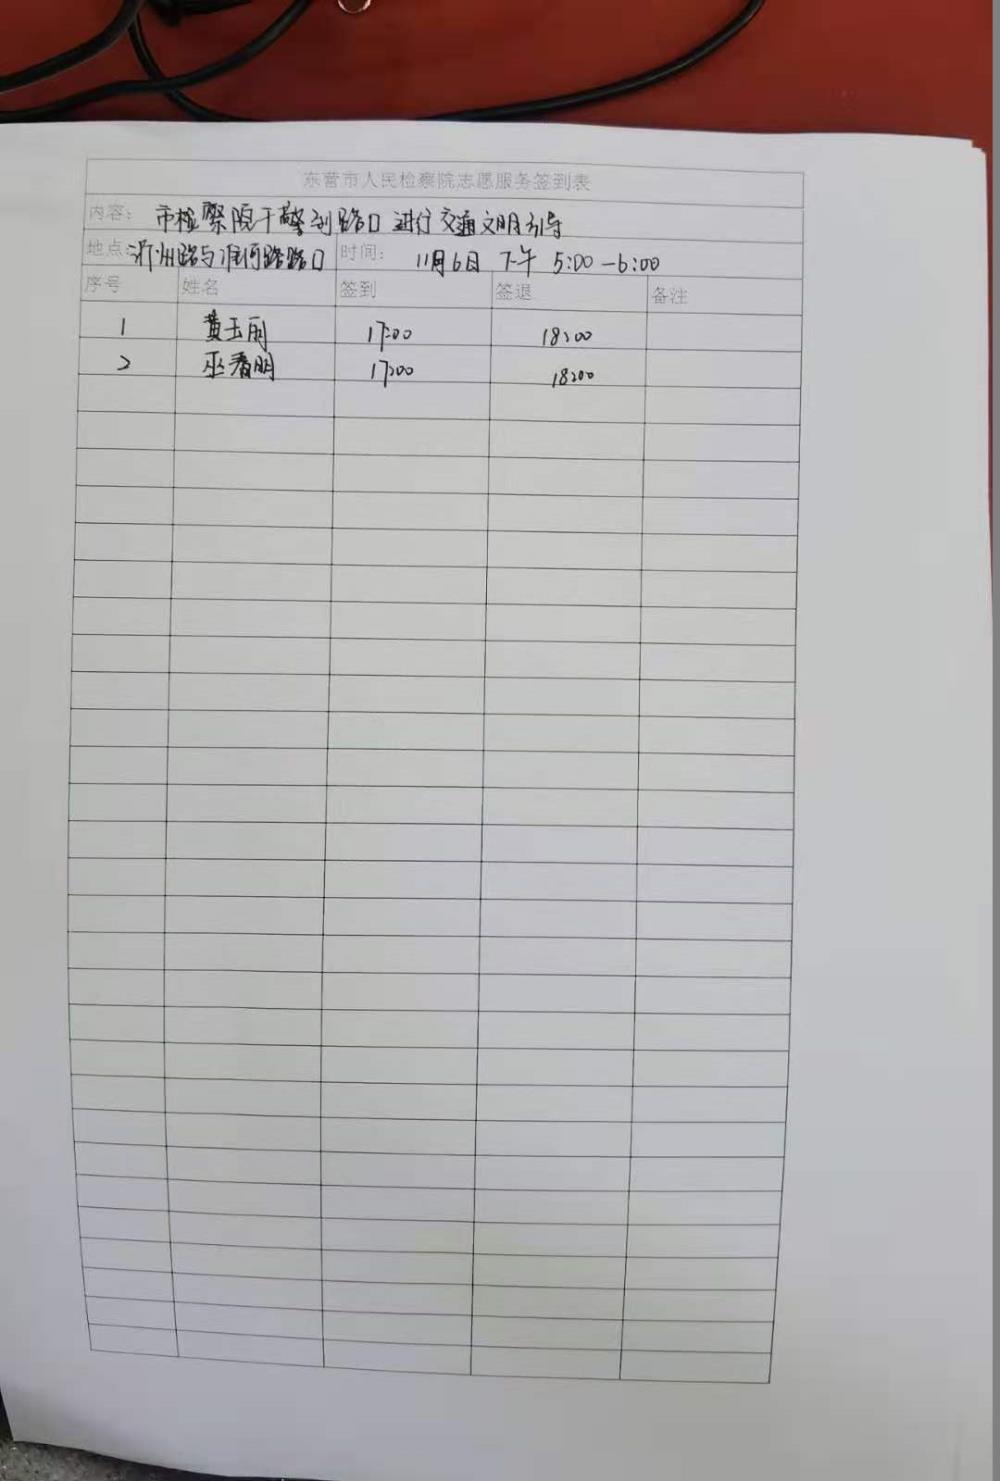 东营市人民检察院志愿服务签到表
内容： 市检察院干警到路口进行交通文明引导
地点：沂州路与淮河路路口 时间： 11月6日 下午 5:00-6:00
序号 姓名 签到 签退 备注
1 黄玉丽 17:00 18:00
2 巫春明 17:00 18:00